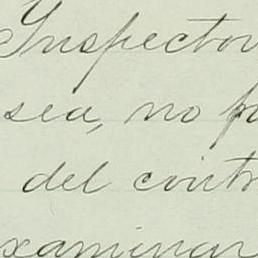 Inspector
sea, no p
del contr
xaminar